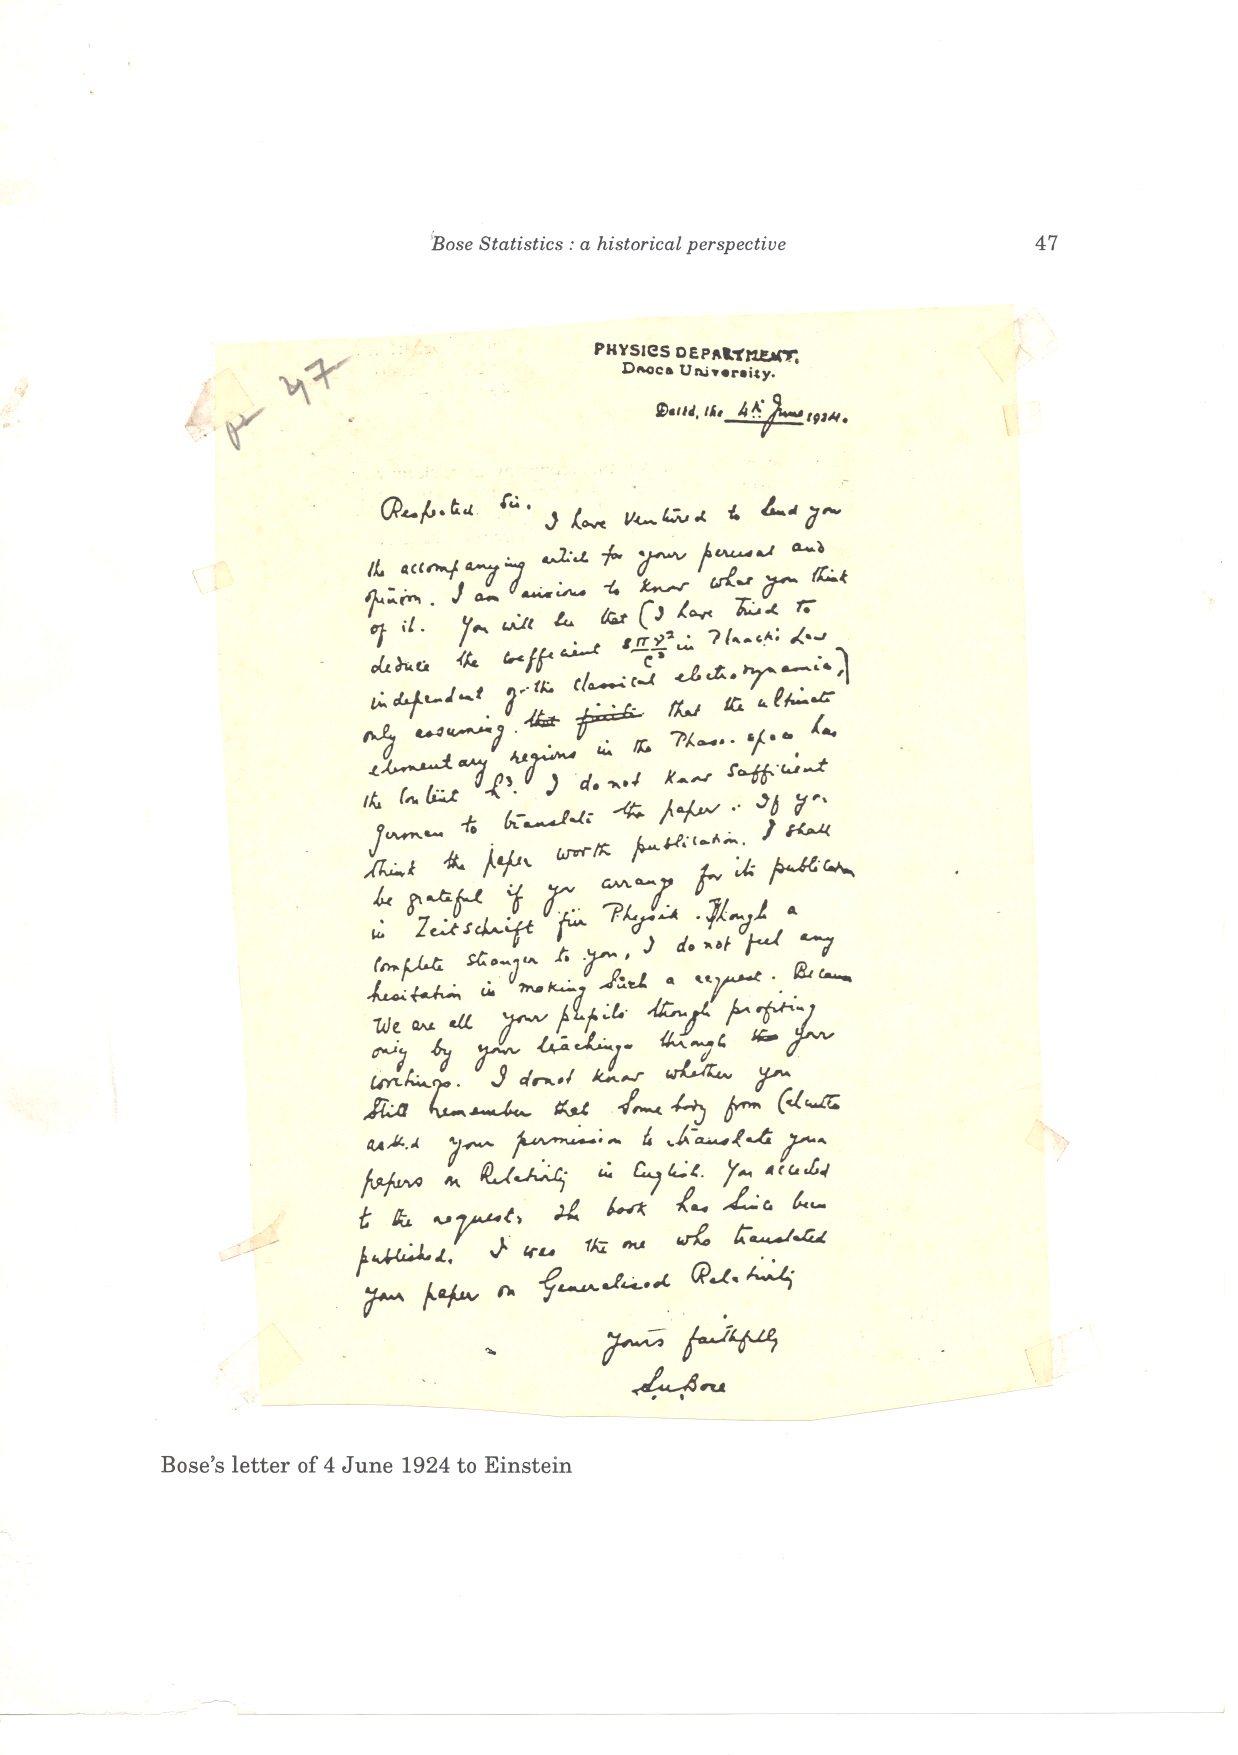 Bose Statistics : a historical perspective 47
PHYSICS DEPARTMENT.
Dacca University.
Dated, the 4th June 1924.
p 47
Respected Sir. I have ventured to send you
the accompanying article for your perusal and
opinion. I am anxious to know what you think
of it. You will see that (I have tried to
deduce the coefficient 8πν²/c³ in Planck's Law
independent of the classical electrodynamics,)
only assuming that finite that the ultimate
elementary regions in the Phase-space has
the content h³. I do not know sufficient
german to translate the paper. If you
think the paper worth publication. I shall
be grateful if you arrange for its publication
in Zeitschrift für Physik. Though a
complete stranger to you, I do not feel any
hesitation in making such a request. Because
We are all your pupils though profiting
only by your teachings through the your
writings. I donot know whether you
still remember that Somebody from Calcutta
asked your permission to translate your
papers on Relativity in English. You acceded
to the request, The book has since been
published. I was the one who translated
your paper on Generalised Relativity
Yours faithfully
S.N.Bose
Bose's letter of 4 June 1924 to Einstein